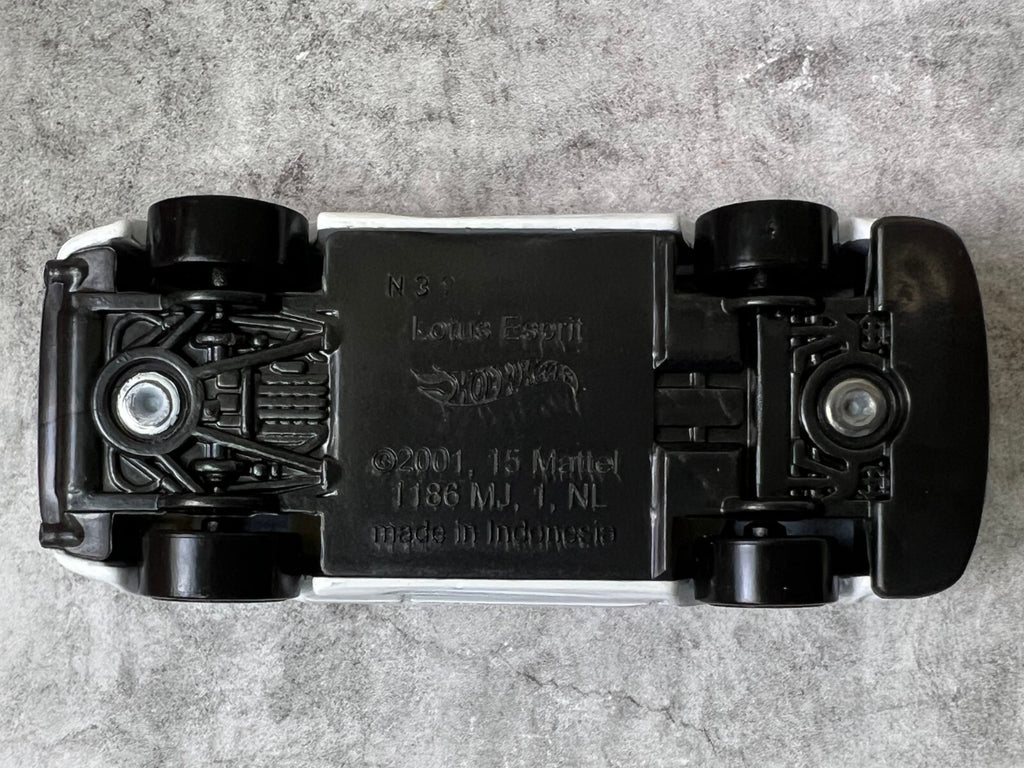 Lotus Esprit
HOT WHEELS
©2001, 15 Mattel
1186 MJ, 1, NL
made in Indonesia